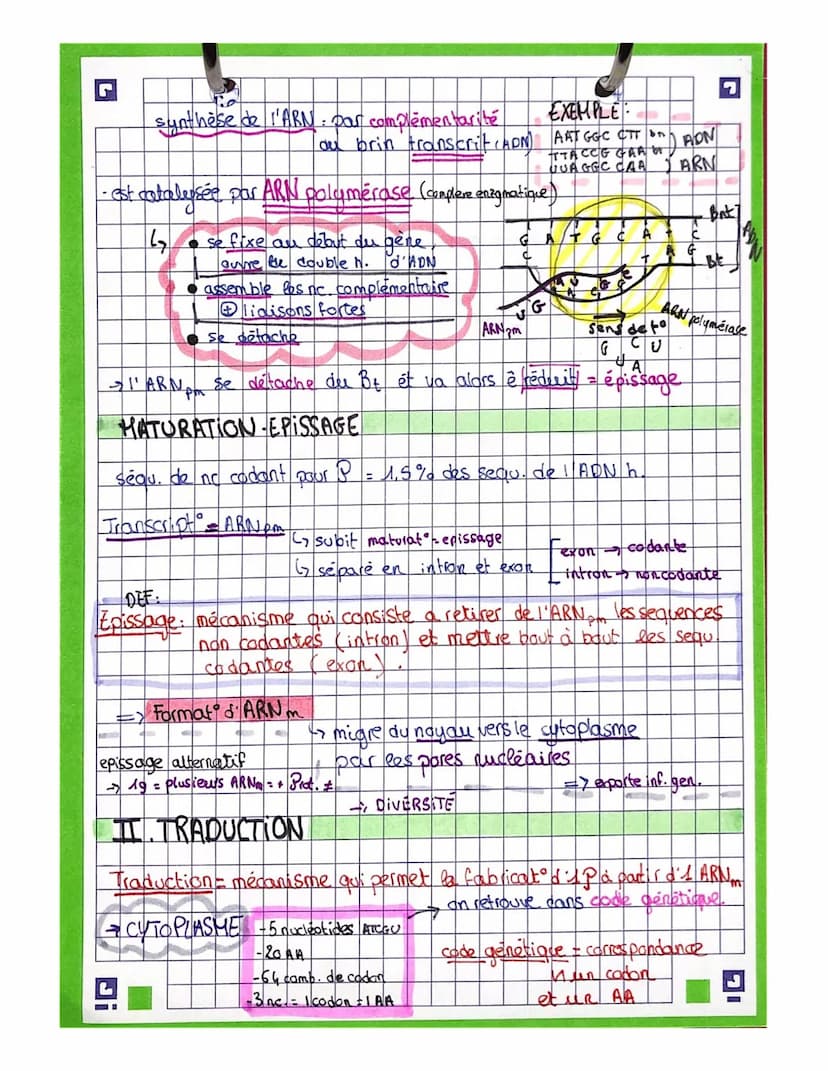 synthèse de l'ARN : par complémentarité
au brin transcrit (ADN)
EXEMPLE :
AAT GGC CTT bn
TTA CCG GAA bt
) ADN
UUA GGC CAA
) ARN
- est catalysée par ARN polymérase (complexe enzymatique)
↳ • se fixe au début du gène,
ouvre le double h. d'ADN
• assemble les nc. complémentaire
⊕ liaisons fortes
• se détache
Bnt
G A T G C A T C
ADN
Bt
ARNpm
U G
sens de t°
ARN polymérase
G C U
U A
→ l'ARNpm se détache du Bt et va alors ê réduit = épissage
MATURATION-EPISSAGE
séqu. de nc codant pour P = 1,5% des sequ. de l'ADN h.
Transcript° = ARNpm
↳ subit maturat° = epissage
↳ séparé en intron et exon
exon → codante
intron → noncodante
DEF:
Épissage: mécanisme qui consiste a retirer de l'ARNpm les sequences
non codantes (intron) et mettre bout à bout les sequ.
codantes (exon).
=> Format° d'ARNm
↳ migre du noyau vers le cytoplasme
par les pores nucléaires
epissage alternatif
→ 1g = plusieurs ARNm = + Prot. ≠
=> exporte inf. gen.
→ DIVERSITÉ
II. TRADUCTION
Traduction = mécanisme qui permet la fabricat° d'1P à partir d'1 ARNm
→ CYTOPLASME
- 5 nucléotides ATCGU
- 20 AA
- 64 comb. de codon
- 3 nc. = 1 codon = 1 AA
→ on retrouve dans code génétique.
code génétique = correspondance
h un codon
et un AA